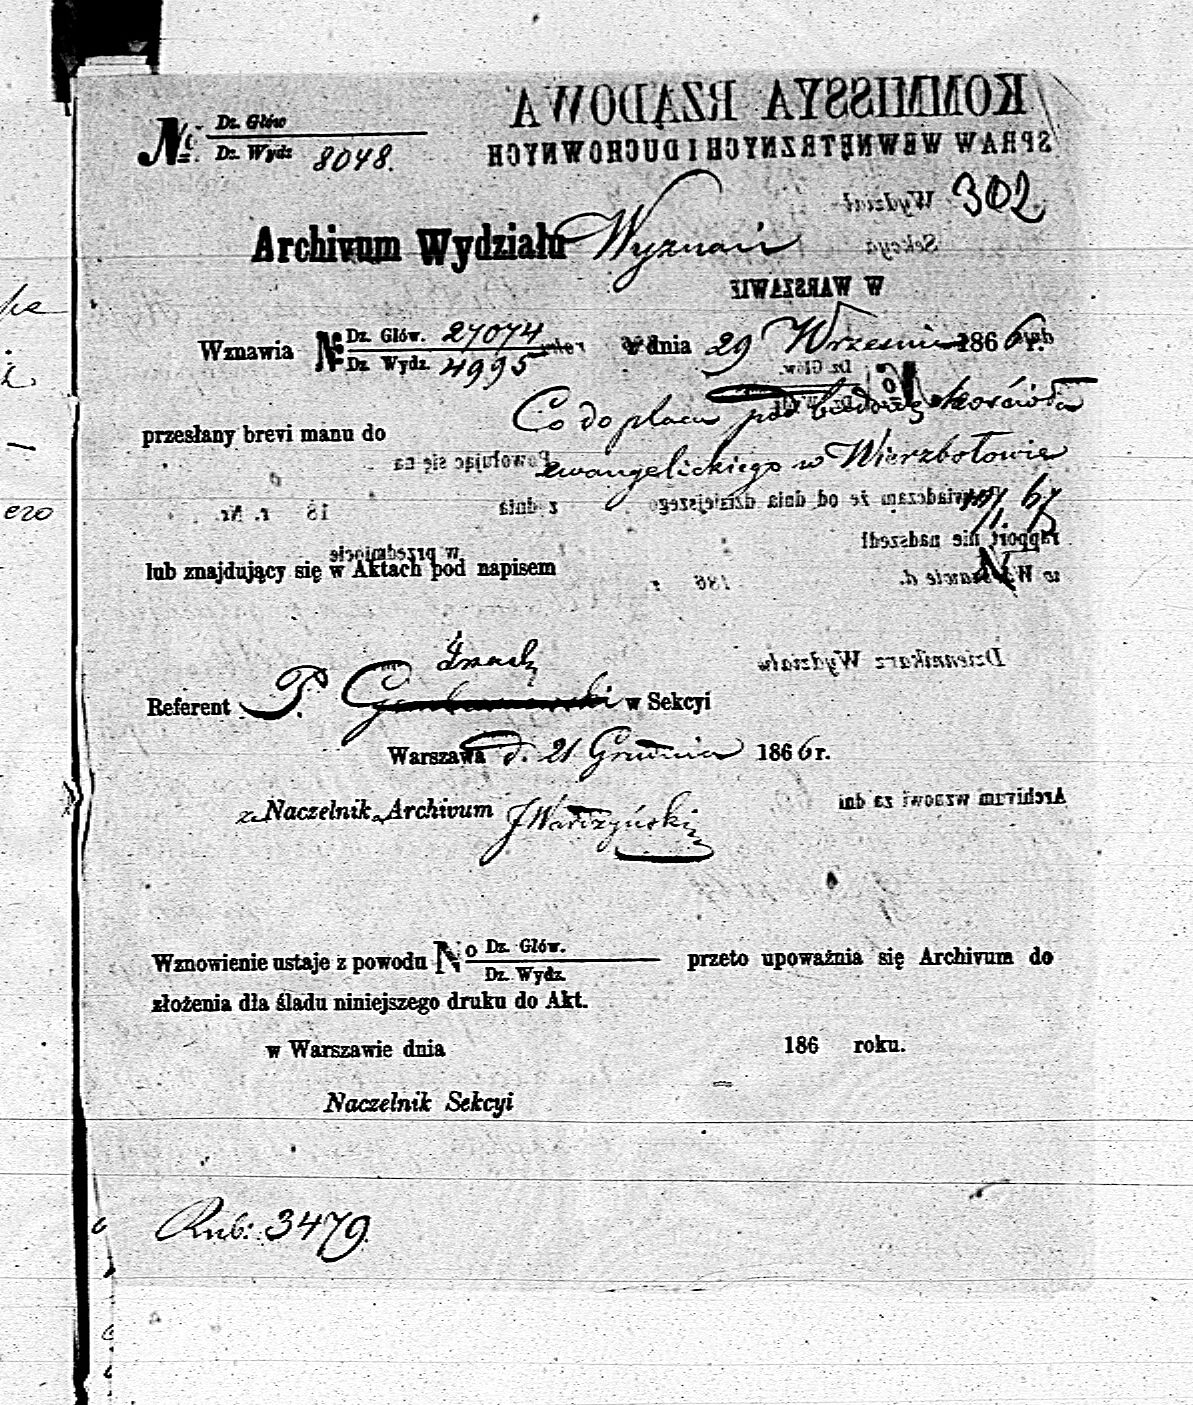 № Dz. Głów
Dz. Wydz 8048.
KOMMISSYA RZĄDOWA
SPRAW WEWNĘTRZNYCH I DUCHOWNYCH
Wydział 302.
Sekcya
Archivum Wydziału Wyznań
W WARSZAWIE
Wznawia № Dz. Głów. 27074 dnia 29 Wrześni 1866 r.
Dz. Wydz. 4995
Dz. Głów.
przesłany brevi manu do Co do placu pod budowę kościoła
Powołując się na
ewangelickiego w Wierzbołowie
poświadczam że od dnia dzisiejszego z dnia 18 r. Nr.
w przedmiocie
rapport nie nadszedł
lub znajdujący się w Aktach pod napisem
w Warszawie d. 186 r.
Dziennikarz Wydziału
Referent P. w Sekcyi
Warszawa d. 21 Grudnia 1866 r.
Archivum wznowi za dni
z. Naczelnik Archivum
Wznowienie ustaje z powodu No Dz. Głów. przeto upoważnia się Archivum do
Dz. Wydz.
złożenia dla śladu niniejszego druku do Akt.
w Warszawie dnia 186 roku.
Naczelnik Sekcyi
Rub: 3479.